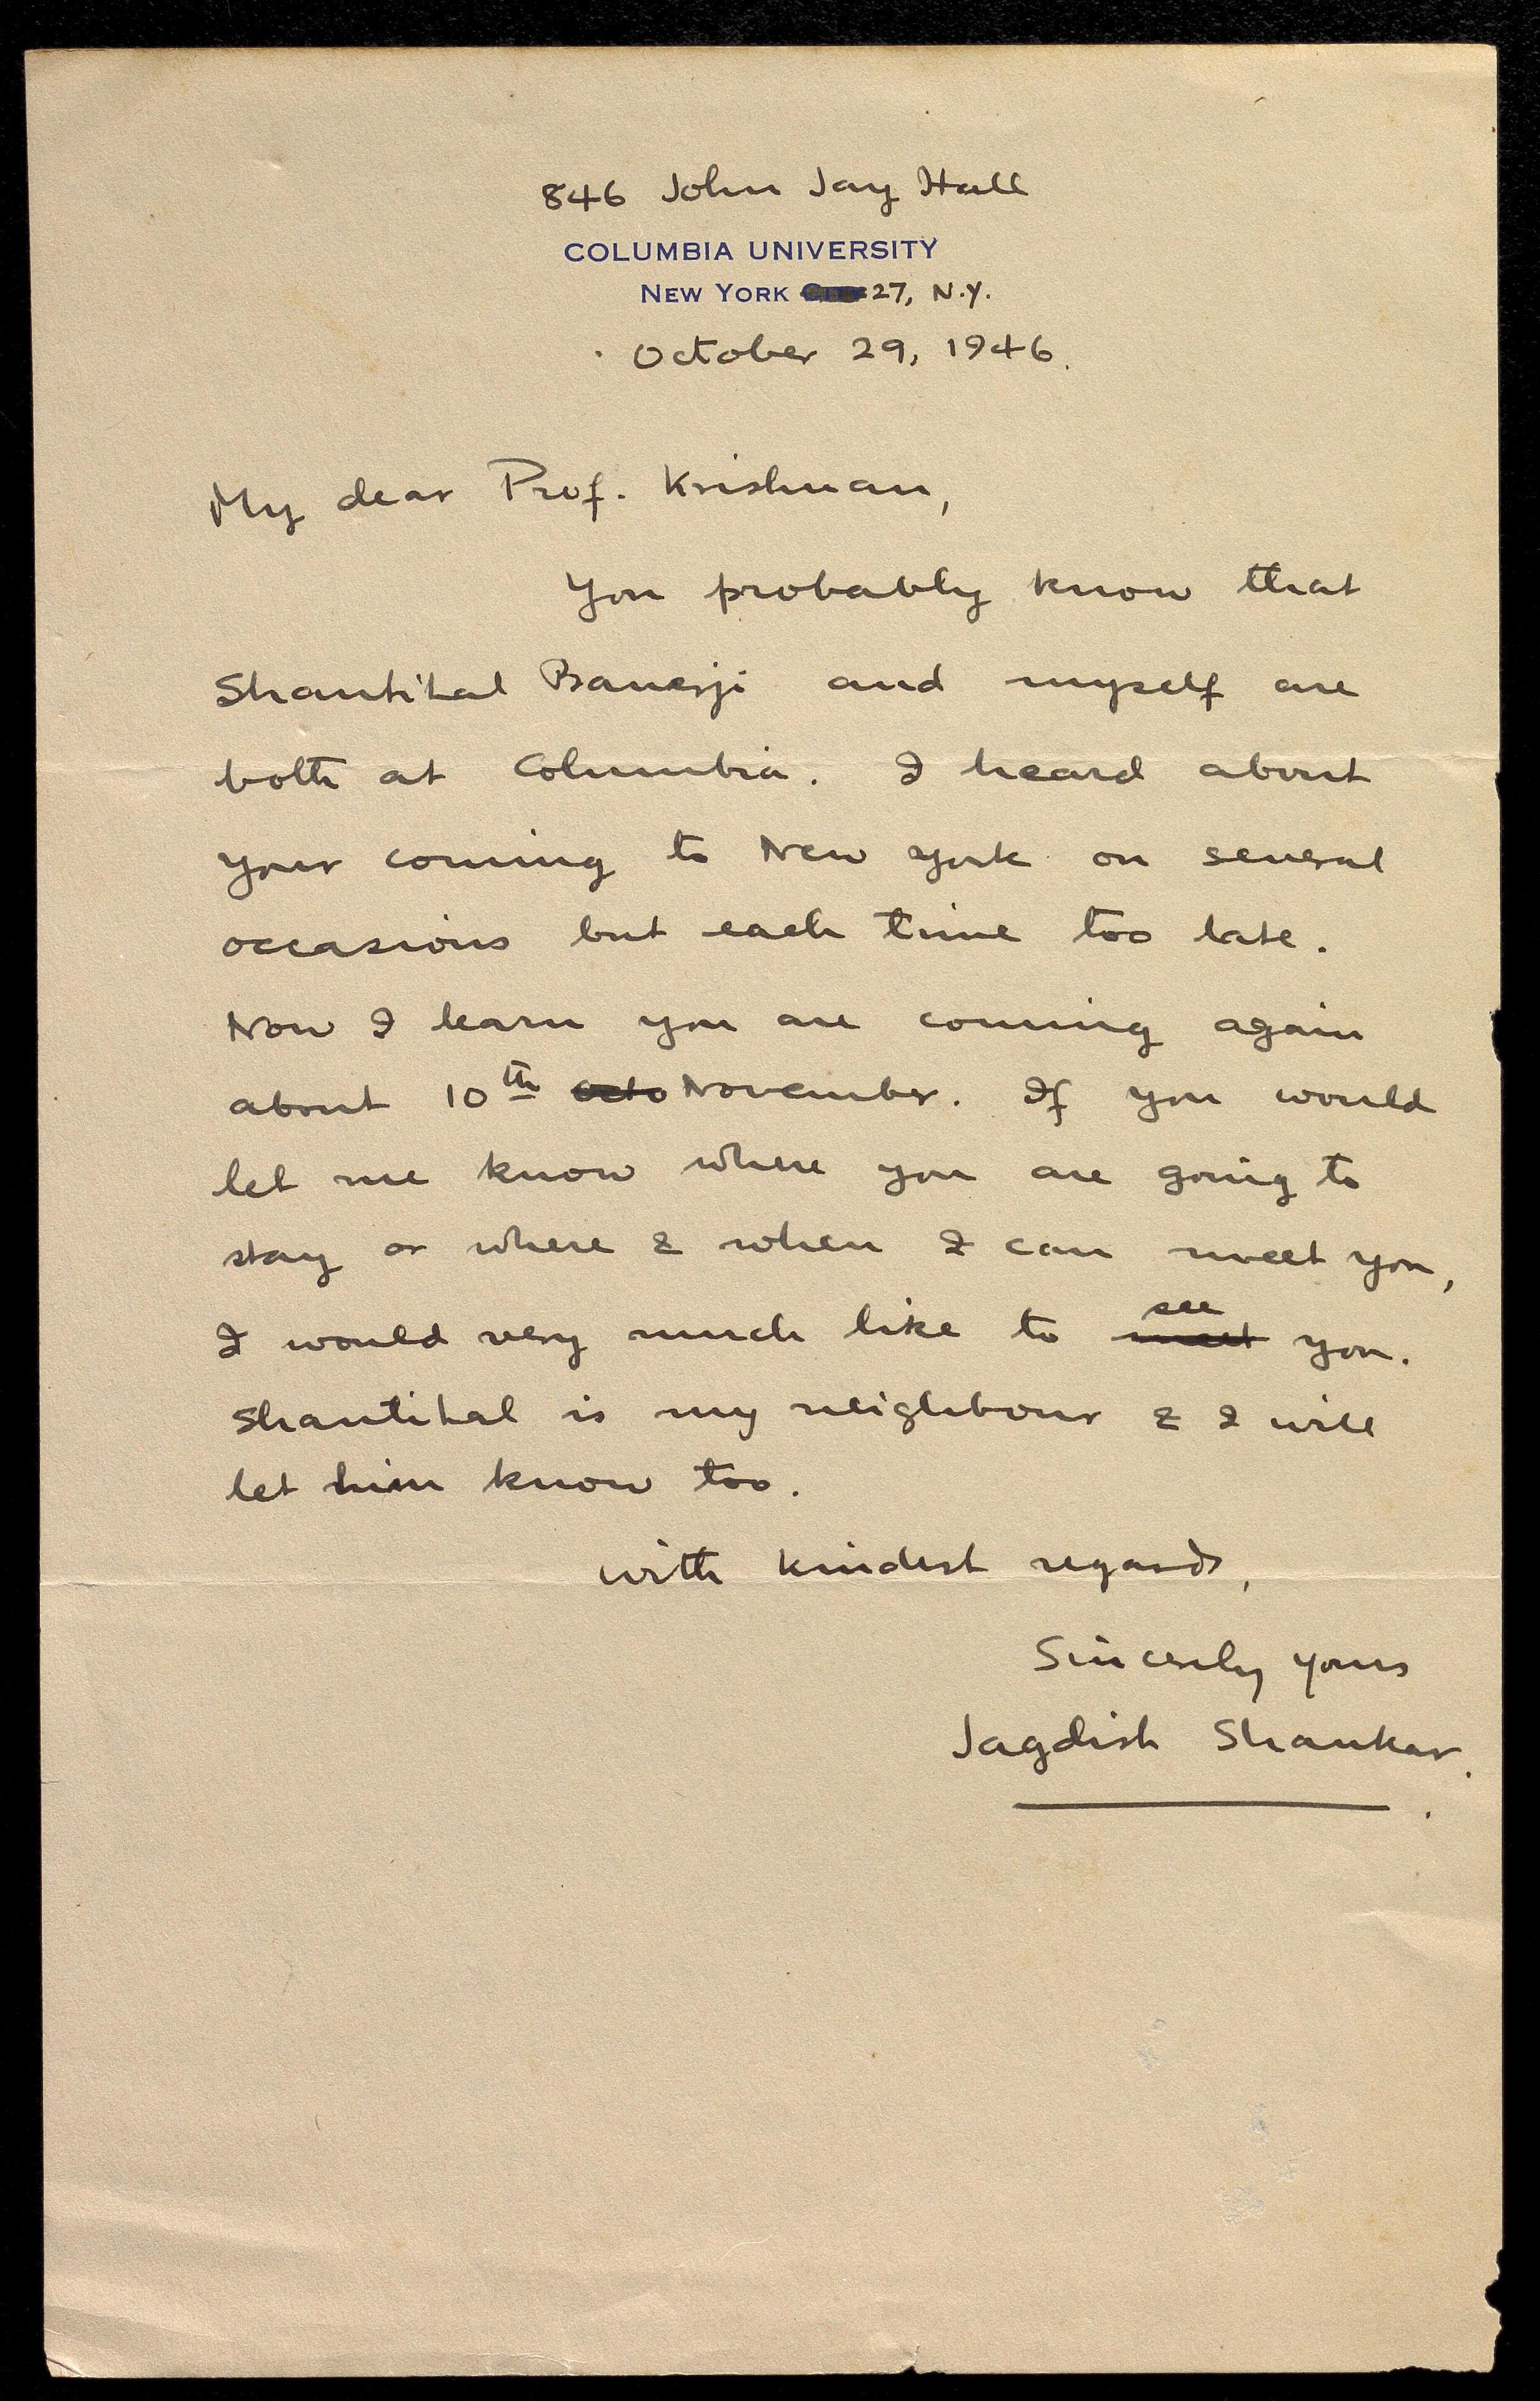 846 John Jay Hall
COLUMBIA UNIVERSITY
NEW YORK CITY 27, N.Y.
October 29, 1946.
My dear Prof. Krishnan,
You probably know that
Shantilal Banerji and myself are
both at Columbia. I heard about
your coming to New York on several
occasions but each time too late.
Now I learn you are coming again
about 10th Octo November. If you would
let me know where you are going to
stay or where & when I can meet you,
I would very much like to meet see you.
Shantilal is my neighbour & I will
let him know too.
With kindest regards,
Sincerely yours
Jagdish Shankar.